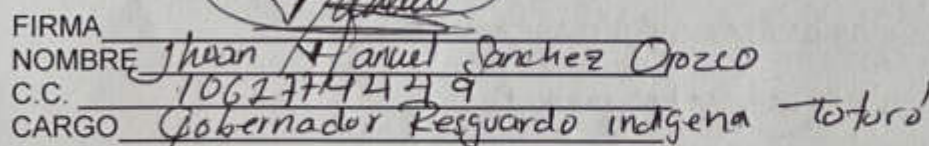 FIRMA
NOMBRE Jhoan Manuel Sanchez Orozco
C.C. 1062774449
CARGO Gobernador Resguardo indigena Totoró